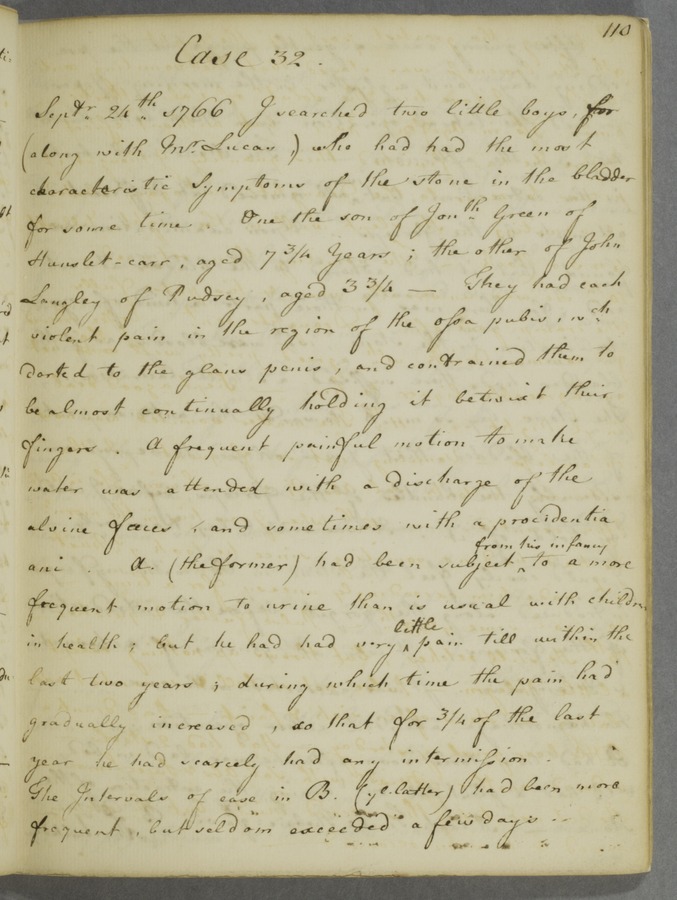 110
Case 32.
Septr. 24th. 1766 I searched two little boys, for
(along with Mr. Lucas,) who had had the most
characteristic symptoms of the stone in the bladder
for some time. One the son of Jonth. Green of
Hunslet-carr, aged 7 3/4 Years; the other of John
Langley of Pudsey, aged 3 3/4 — They had each
violent pain in the region of the ossa pubis, wch.
darted to the glans penis, and contrained them to
be almost continually holding it betwixt their
fingers. A frequent painful motion to make
water was attended with a discharge of the
alvine fæces, and sometimes with a procidentia
from his infancy
ani. A. (the former) had been subject ‸ to a more
frequent motion to urine than is usual with children
little
in health; but he had had very ‸ pain till within the
last two years; during which time the pain had
gradually increased, so that for 3/4 of the last
year he had scarcely had any intermission.
The Intervals of ease in B. (ye. latter) had been more
frequent, but seldom exceeded a few days.